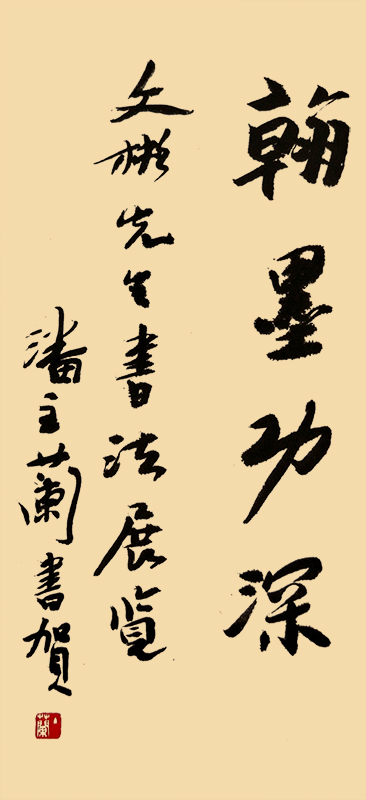 翰墨功深
文彬先生書法展览
潘主蘭書賀